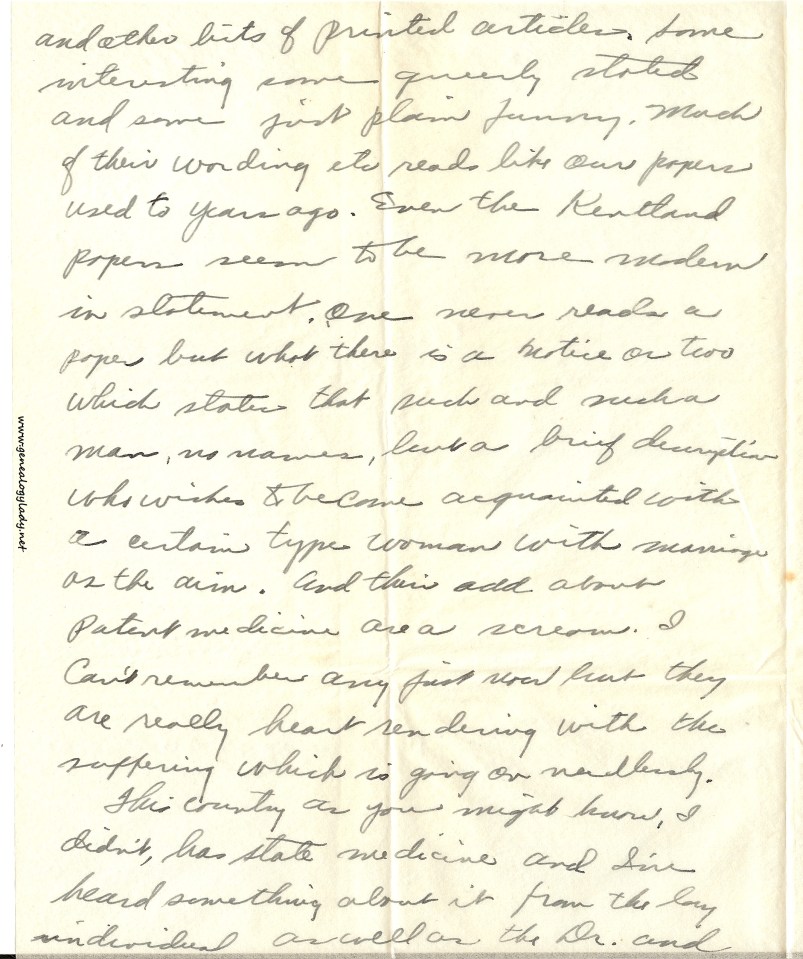 and other bits of printed articles. Some
interesting some queerly stated
and some just plain funny. Much
of their wording etc reads like our papers
used to years ago. Even the Kentland
papers seem to be more modern
in statement. One never reads a
paper but what there is a notice or two
which states that such and such a
man, no names, but a brief description
who wishes to become acquainted with
a certain type woman with marriage
as the aim. And their add about
patent medicine are a scream. I
Can't remember any just now but they
are really heart rendering with the
suffering which is going on needlessly.
This country as you might know, I
didn't, has state medicine and I've
heard something about it from the lay
individual as well as the Dr. and
www.genealogylady.net